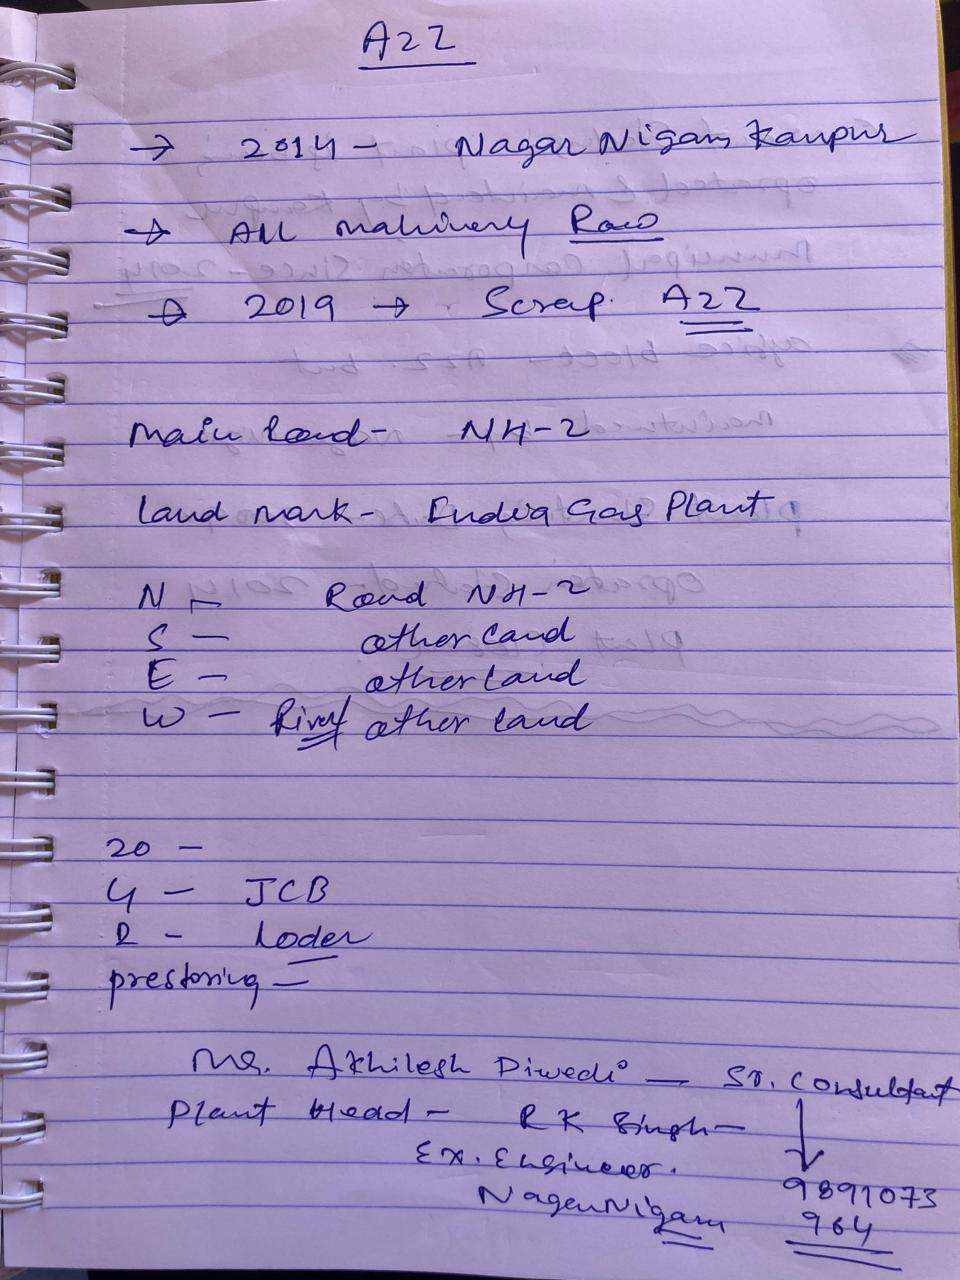 A2Z
→ 2014 - Nagar Nigam Kanpur
→ All mahinery Raw
→ 2019 → Scrap. A2Z
Main Road - NH-2
Land mark - India Gas Plant
N - Road NH-2
S - other land
E - other land
W - River other land
20 -
4 - JCB
2 - Loder
prestoring -
Mr. Akhilesh Diwedi - Sr. Consultat
Plant Head - RK Singh -
Ex. Engineer.
Nagar Nigam
9891073
964